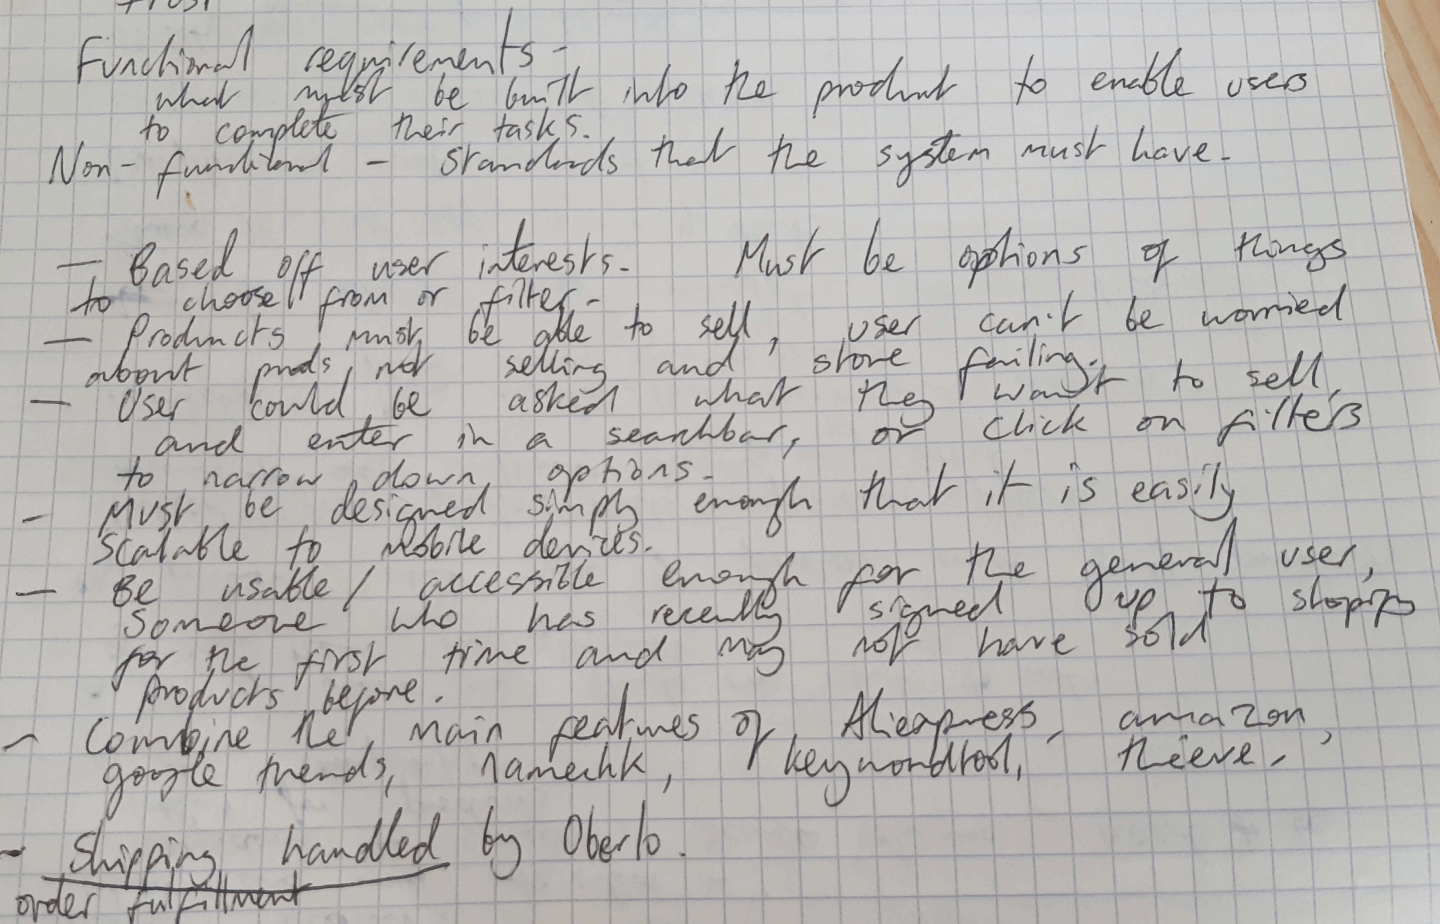 Functional requirements -
what must be built into the product to enable users
to complete their tasks.
Non-functional - standards that the system must have.
- Based off user interests. Must be options of things
to choose from or filter.
- Products must be able to sell, user can't be worried
about prods not selling and store failing.
- User could be asked what they want to sell,
and enter in a searchbar, or click on filters
to narrow down options.
- Must be designed simply enough that it is easily
scalable to mobile devices.
- Be usable/accessible enough for the general user,
someone who has recently signed up to shopify
for the first time and may not have sold
products before.
- Combine the main features of Aliexpress, amazon,
google trends, namechk, keywordtool, thieve.
- Shipping handled by Oberlo.
order fulfillment